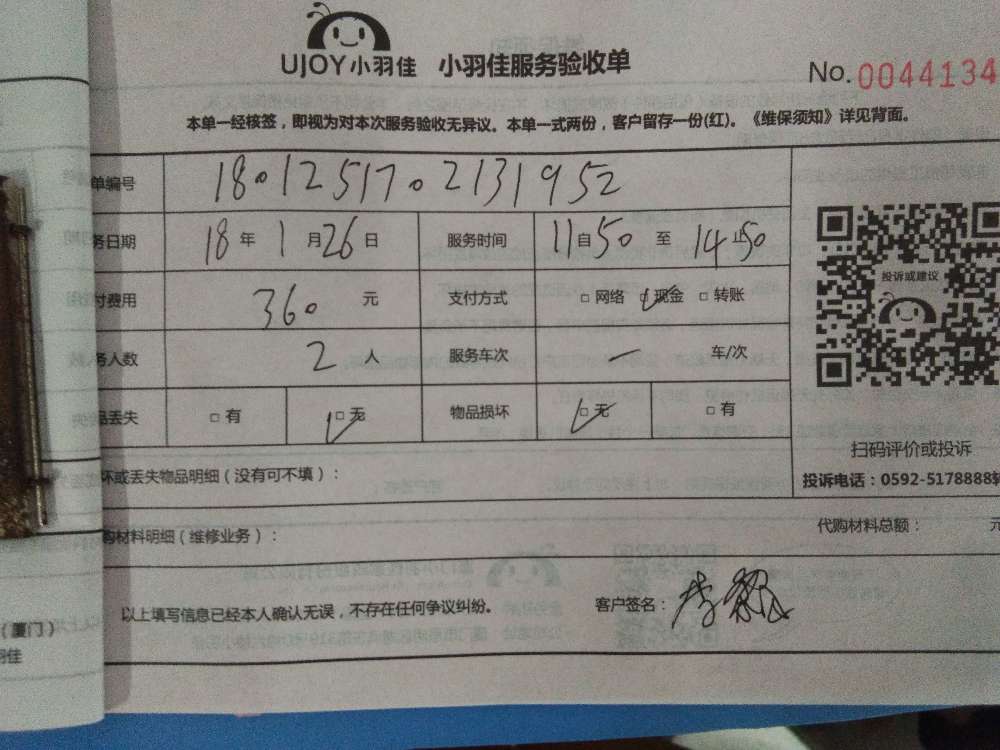 UJOY小羽佳 小羽佳服务验收单
No. 0044134
本单一经核签，即视为对本次服务验收无异议。本单一式两份，客户留存一份(红)。《维保须知》详见背面。
单编号 18.12517.2131952
务日期 18 年 1 月 26 日 服务时间 11 自 50 至 14 止 50
付费用 360 元 支付方式 □ 网络 □ 现金 □ 转账
务人数 2 人 服务车次 一 车/次
品丢失 □ 有 □ 无 物品损坏 □ 无 □ 有
投诉或建议
扫码评价或投诉
投诉电话：0592-5178888转
坏或丢失物品明细（没有可不填）：
购材料明细（维修业务）： 代购材料总额： 元
以上填写信息已经本人确认无误，不存在任何争议纠纷。 客户签名：
（厦门）
羽佳